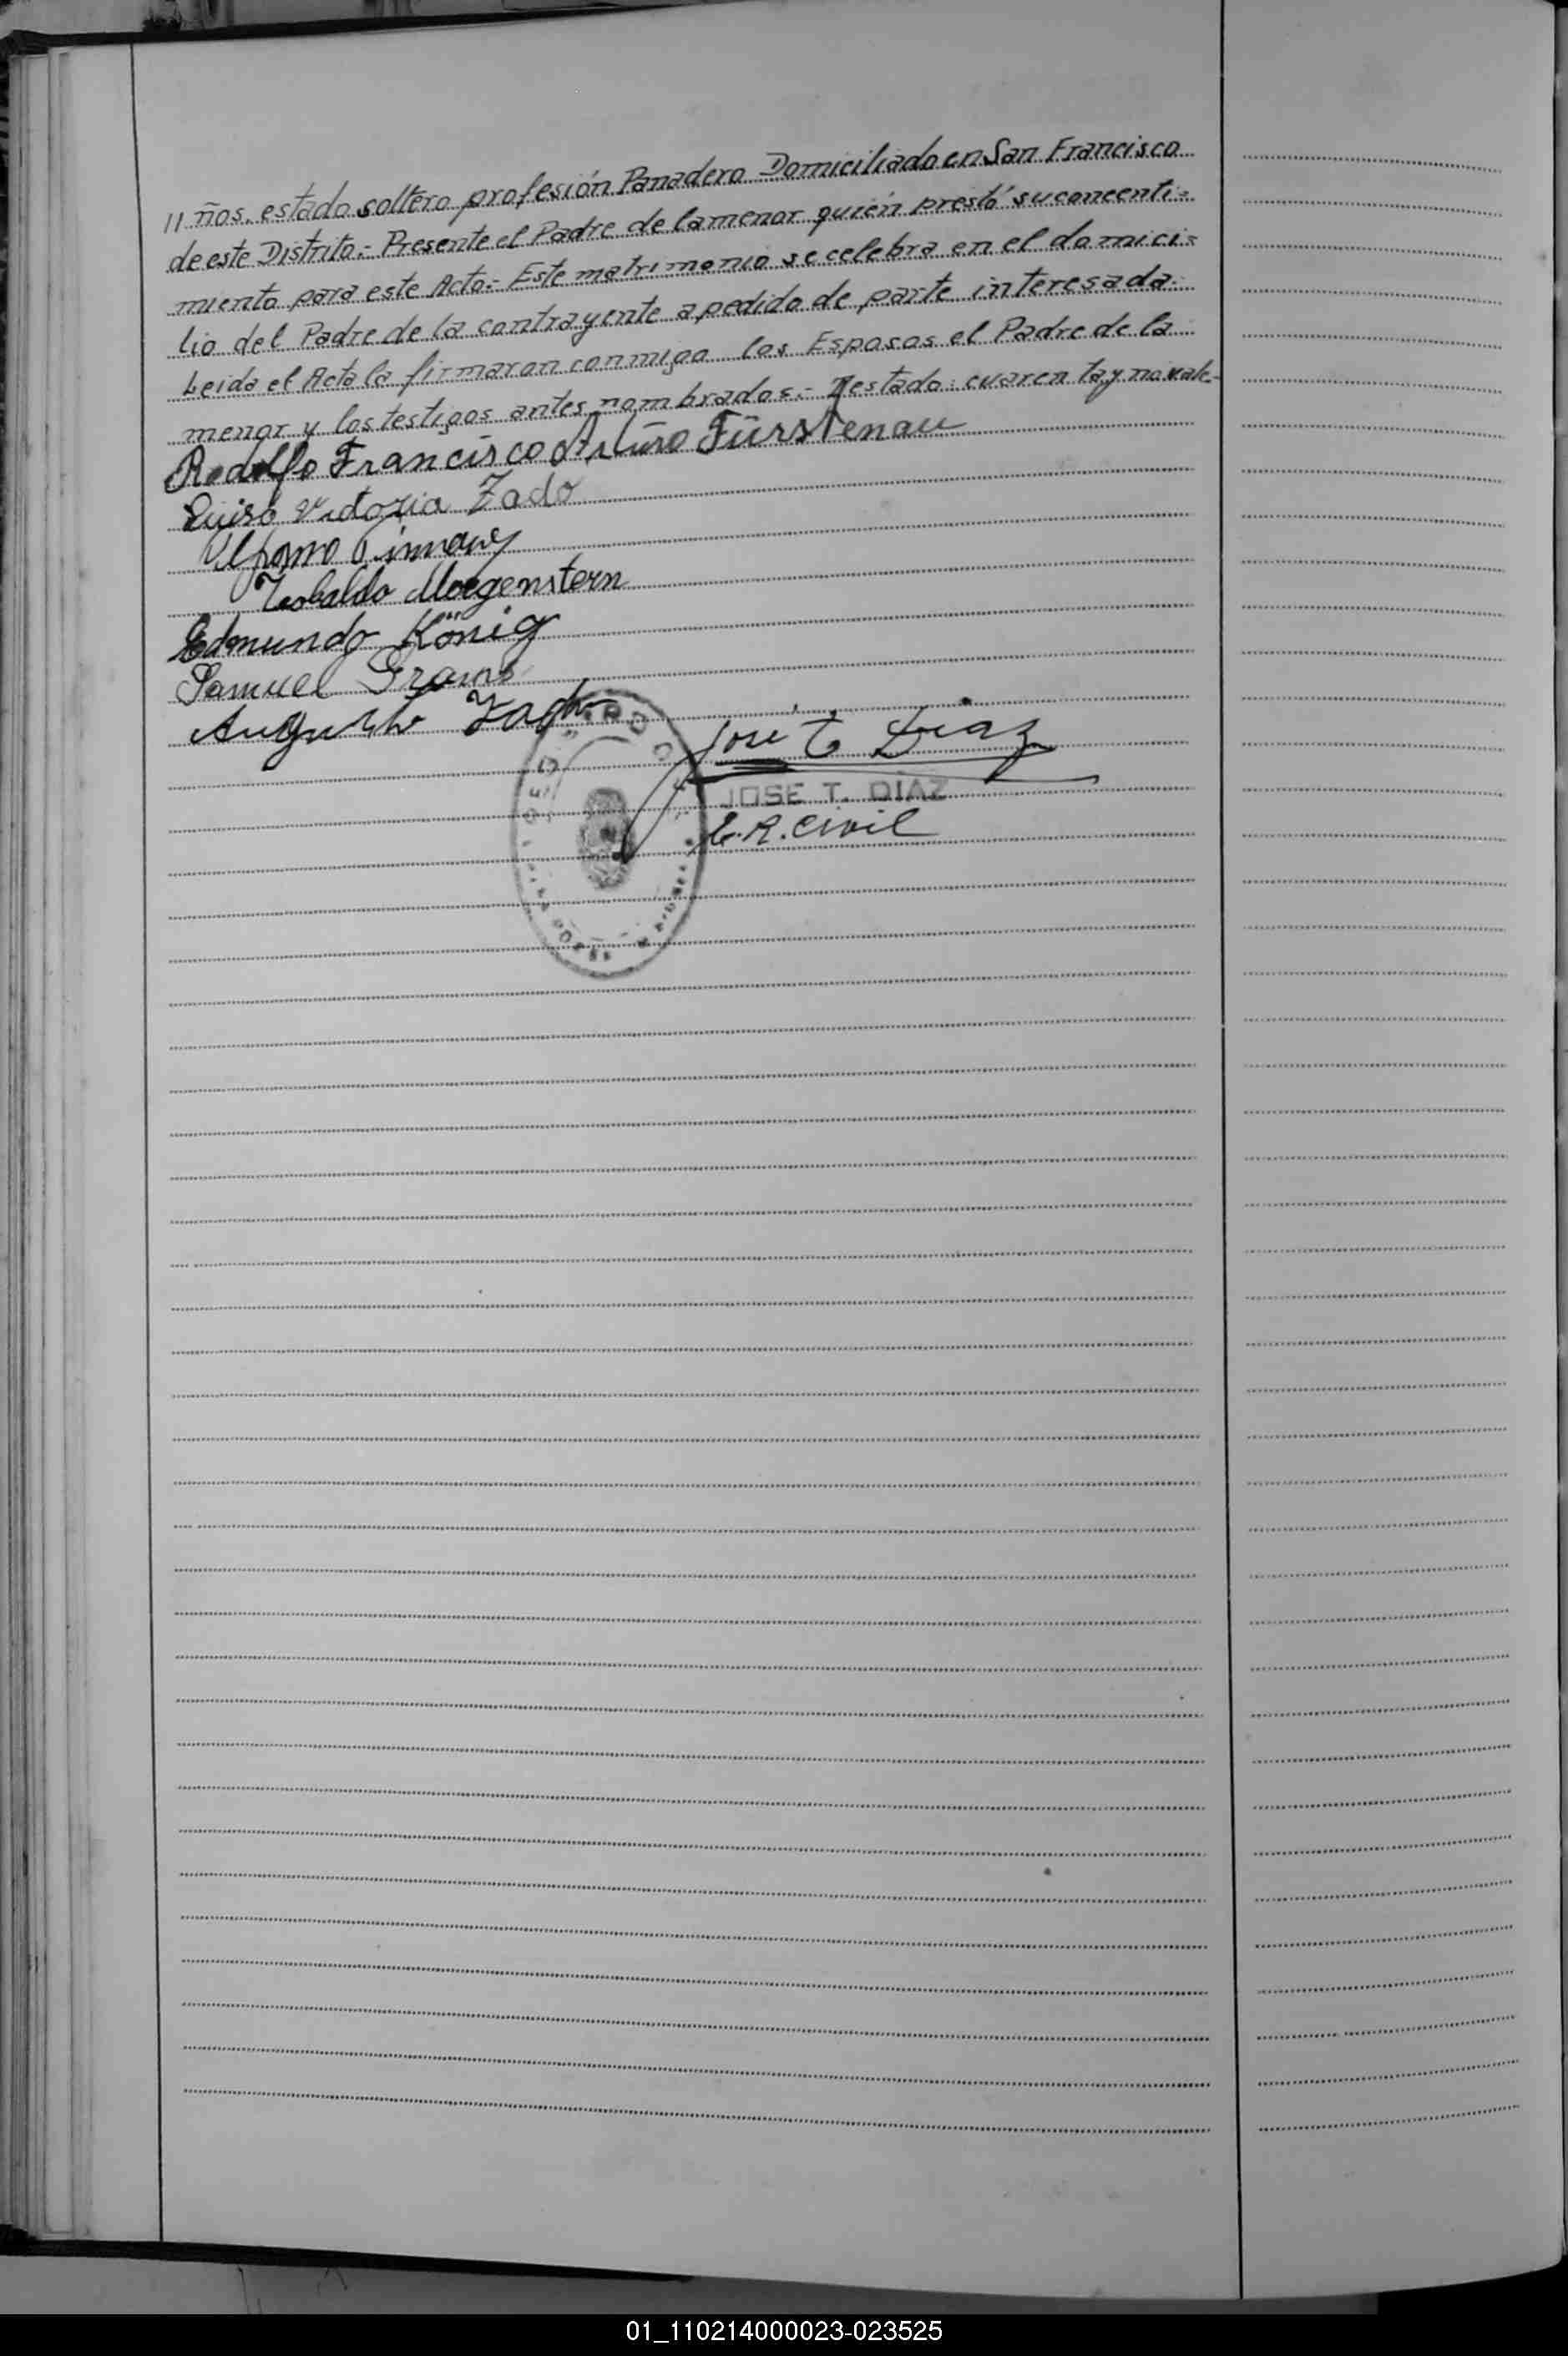 ños. estado soltero profesión Panadero Domiciliado en San Francisco
de este Distrito.- Presente el Padre de la menor quien prestó su concenti=
miento para este Acto.- Este matrimonio se celebra en el domici=
lio del Padre de la contrayente a pedido de parte interesada.
Leida el Acta la firmaran conmigo los Esposos el Padre de la
menor y los testigos antes nombrados.- Testado: cuarenta y no vale.-
Rodolfo Francisco Arturo Fürstenau
Luisa Victoria Zado
Teobaldo Morgenstern
Edmundo König
Samuel
Augusto Zado
José T. Diaz
JOSE T. DIAZ
E. R. Civil
01_110214000023-023525